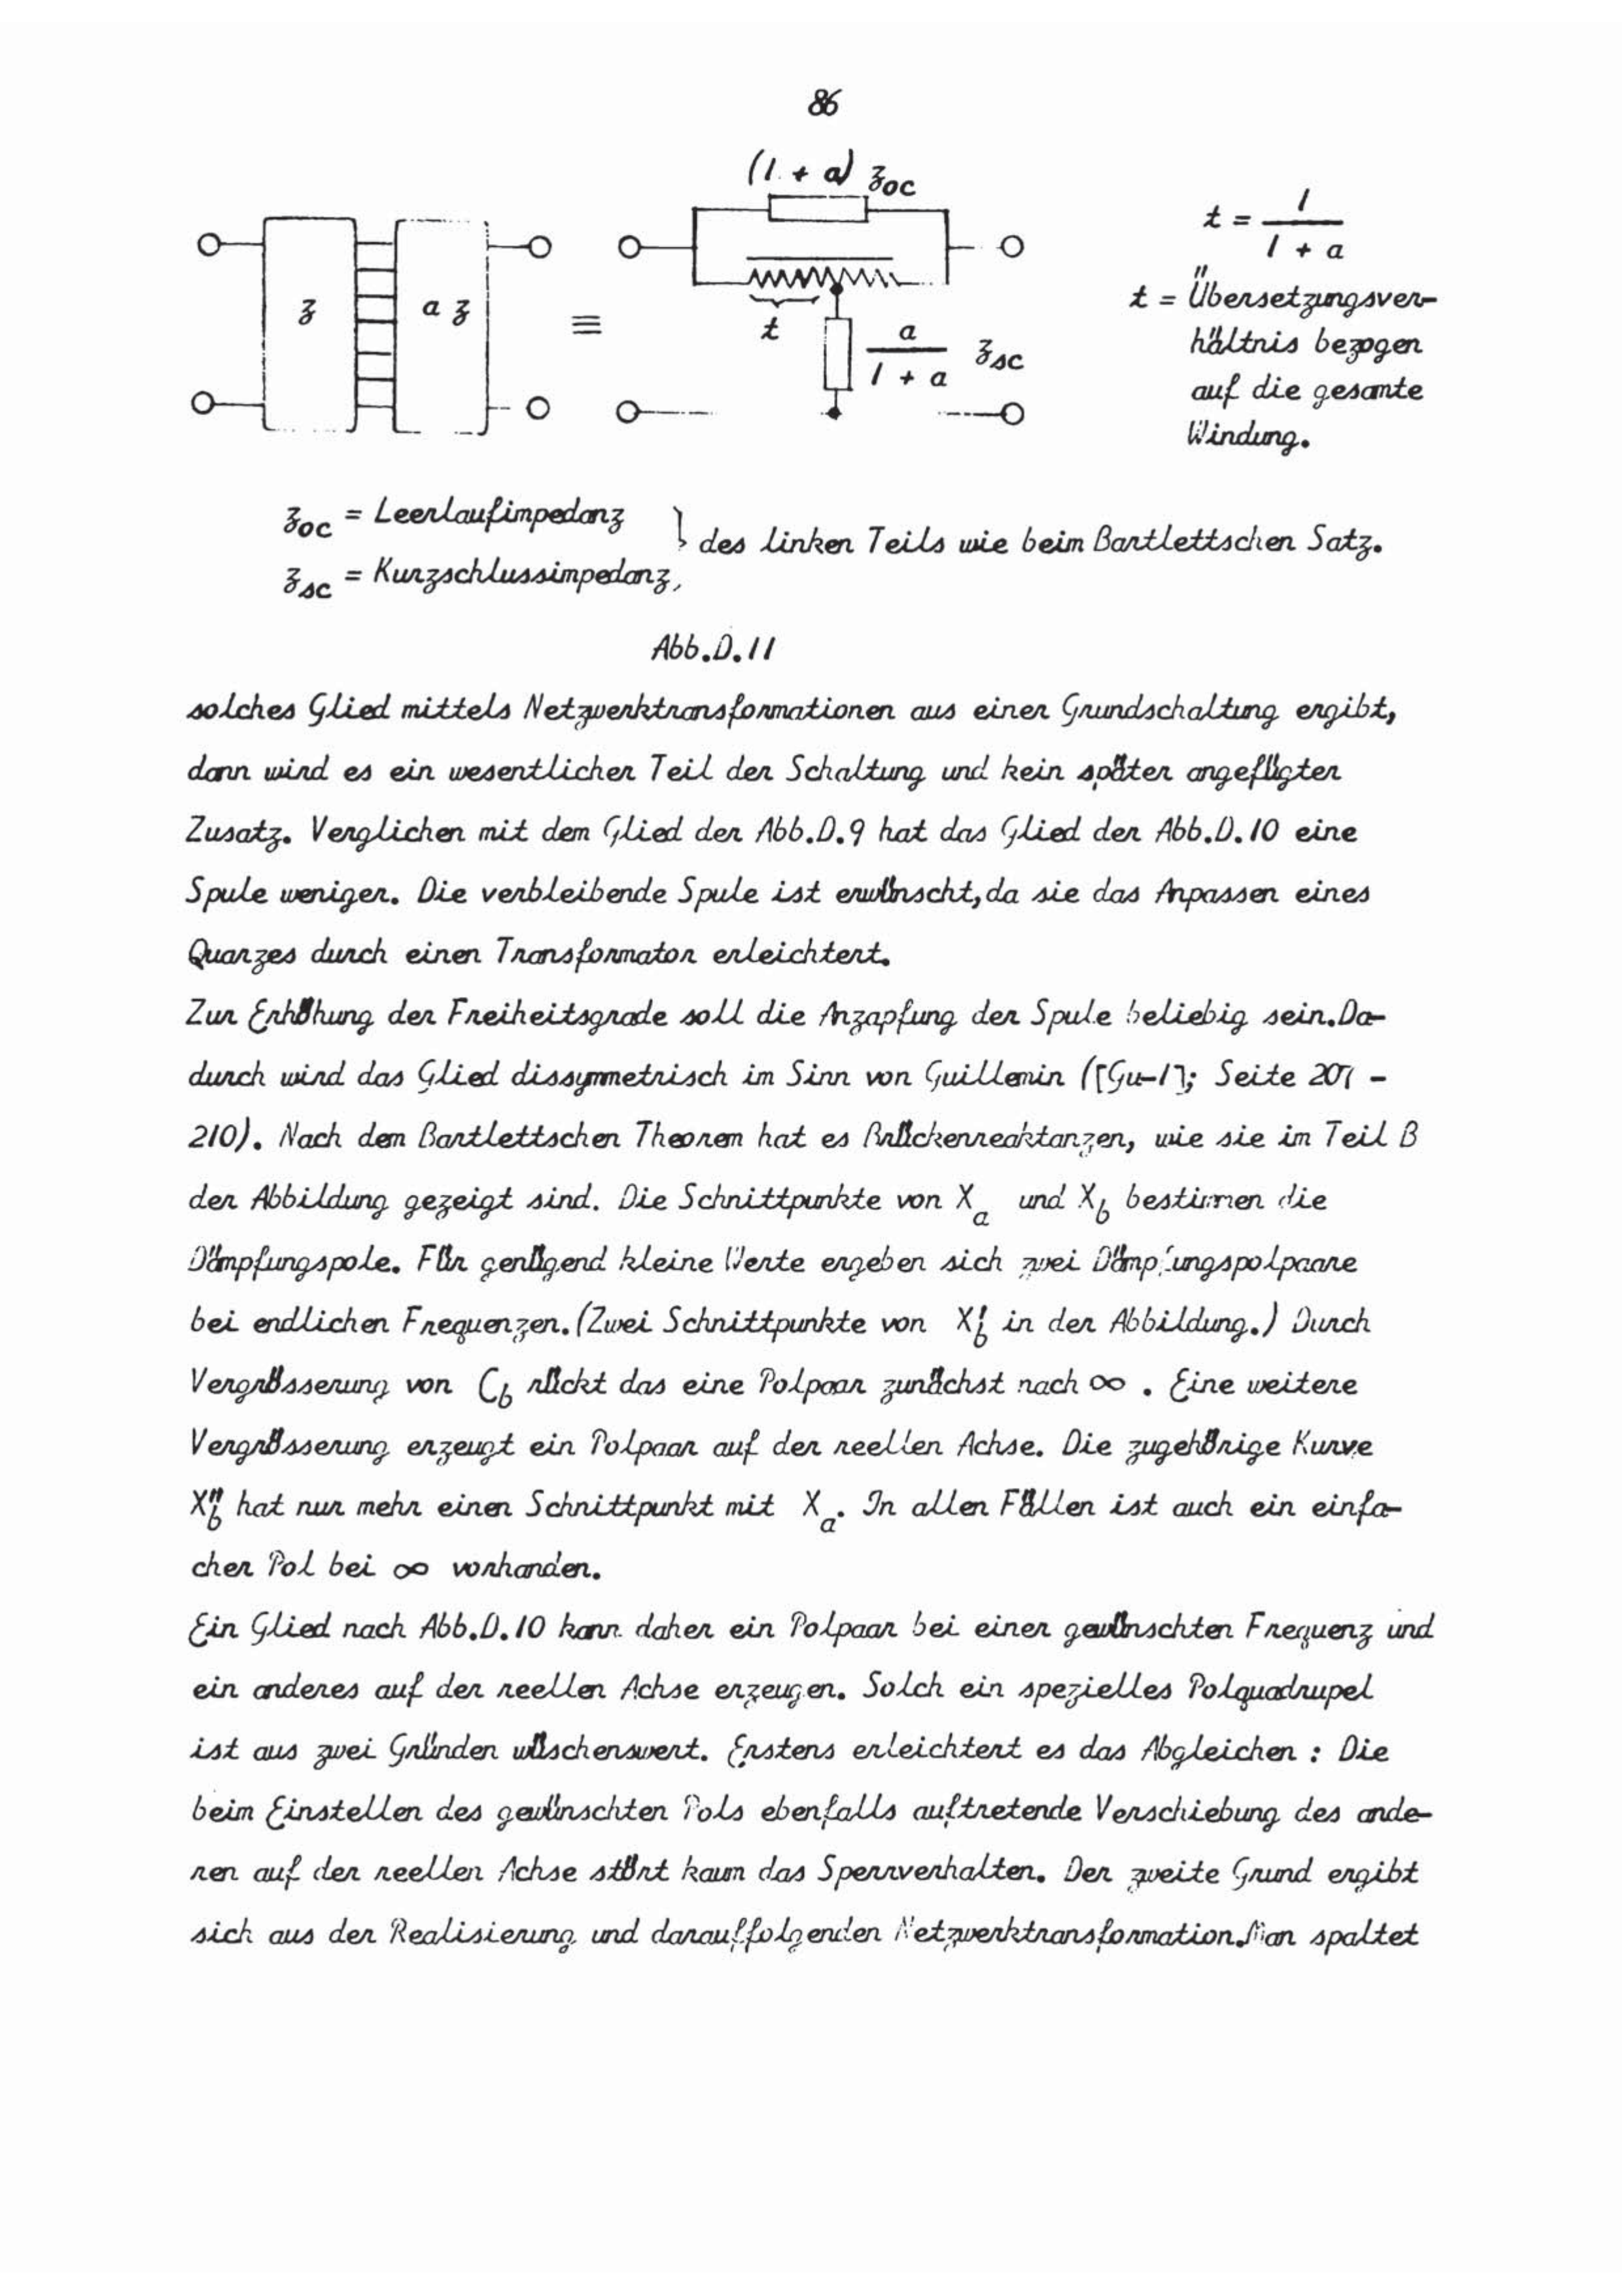 86
(1 + a) z_oc
t = 1 / (1 + a)
z
a z
≡
t
a / (1 + a) z_sc
t = Übersetzungsver-
hältnis bezogen
auf die gesamte
Windung.
z_oc = Leerlaufimpedanz
z_sc = Kurzschlussimpedanz,
} des linken Teils wie beim Bartlettschen Satz.
Abb.D.11
solches Glied mittels Netzwerktransformationen aus einer Grundschaltung ergibt,
dann wird es ein wesentlicher Teil der Schaltung und kein später angefügter
Zusatz. Verglichen mit dem Glied der Abb.D.9 hat das Glied der Abb.D.10 eine
Spule weniger. Die verbleibende Spule ist erwünscht,da sie das Anpassen eines
Quarzes durch einen Transformator erleichtert.
Zur Erhöhung der Freiheitsgrade soll die Anzapfung der Spule beliebig sein.Da-
durch wird das Glied dissymmetrisch im Sinn von Guillemin ([Gu-1]; Seite 207 -
210). Nach dem Bartlettschen Theorem hat es Brückenreaktanzen, wie sie im Teil B
der Abbildung gezeigt sind. Die Schnittpunkte von X_a und X_b bestimmen die
Dämpfungspole. Für genügend kleine Werte ergeben sich zwei Dämpfungspolpaare
bei endlichen Frequenzen.(Zwei Schnittpunkte von X'_b in der Abbildung.) Durch
Vergrösserung von C_b rückt das eine Polpaar zunächst nach ∞ . Eine weitere
Vergrösserung erzeugt ein Polpaar auf der reellen Achse. Die zugehörige Kurve
X"_b hat nur mehr einen Schnittpunkt mit X_a. In allen Fällen ist auch ein einfa-
cher Pol bei ∞ vorhanden.
Ein Glied nach Abb.D.10 kann daher ein Polpaar bei einer gewünschten Frequenz und
ein anderes auf der reellen Achse erzeugen. Solch ein spezielles Polquadrupel
ist aus zwei Gründen wüschenswert. Erstens erleichtert es das Abgleichen : Die
beim Einstellen des gewünschten Pols ebenfalls auftretende Verschiebung des ande-
ren auf der reellen Achse stört kaum das Sperrverhalten. Der zweite Grund ergibt
sich aus der Realisierung und darauffolgenden Netzwerktransformation.Man spaltet